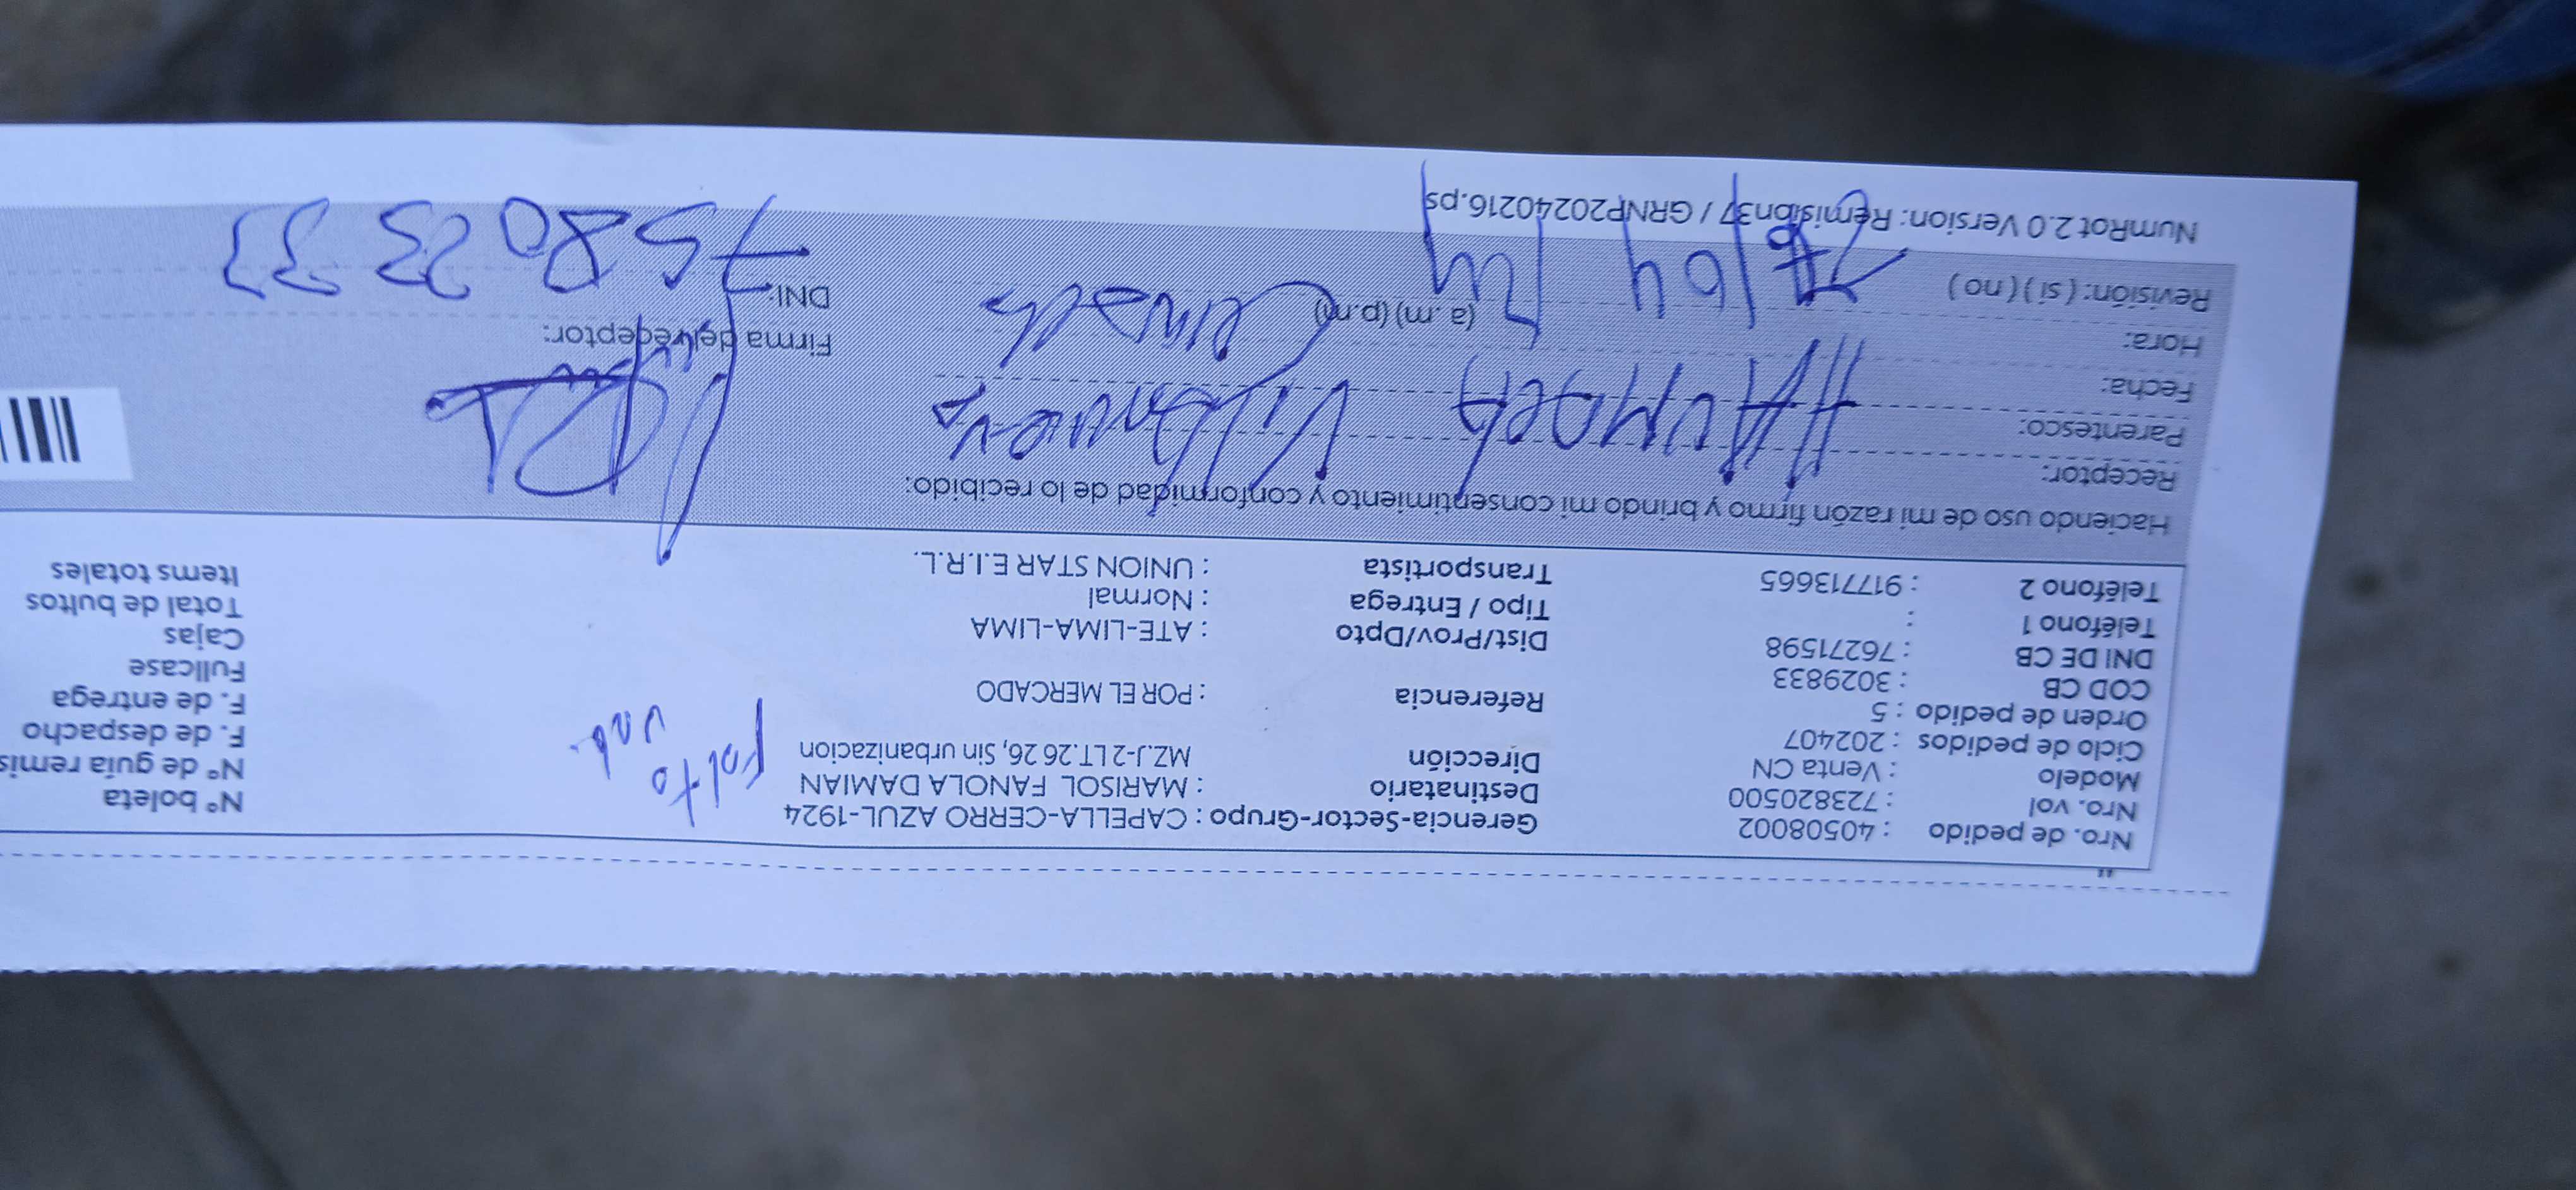 Nro. de pedido : 40508002
Nro. vol : 723820500
Modelo : Venta CN
Ciclo de pedidos : 202407
Orden de pedido : 5
COD CB : 3029833
DNI DE CB : 76271598
Teléfono 1 :
Teléfono 2 : 917713665
Gerencia-Sector-Grupo : CAPELLA-CERRO AZUL-1924
Destinatario : MARISOL FANOLA DAMIAN
Dirección MZ.J-2 LT.26 26, Sin urbanizacion
Referencia : POR EL MERCADO
Dist/Prov/Dpto : ATE-LIMA-LIMA
Tipo / Entrega : Normal
Transportista : UNION STAR E.I.R.L.
Falta
Nº boleta
Nº de guía remis
F. de despacho
F. de entrega
Fullcase
Cajas
Total de bultos
Items totales
Haciendo uso de mi razón firmo y brindo mi consentimiento y conformidad de lo recibido:
Receptor:
Parentesco: Villanueva
Fecha:
Hora: (a.m) (p.m)
Revisión: ( sí ) ( no )
Firma del receptor:
DNI: 75802333
NumRot 2.0 Version: Remision37 / GRNP20240216.ps